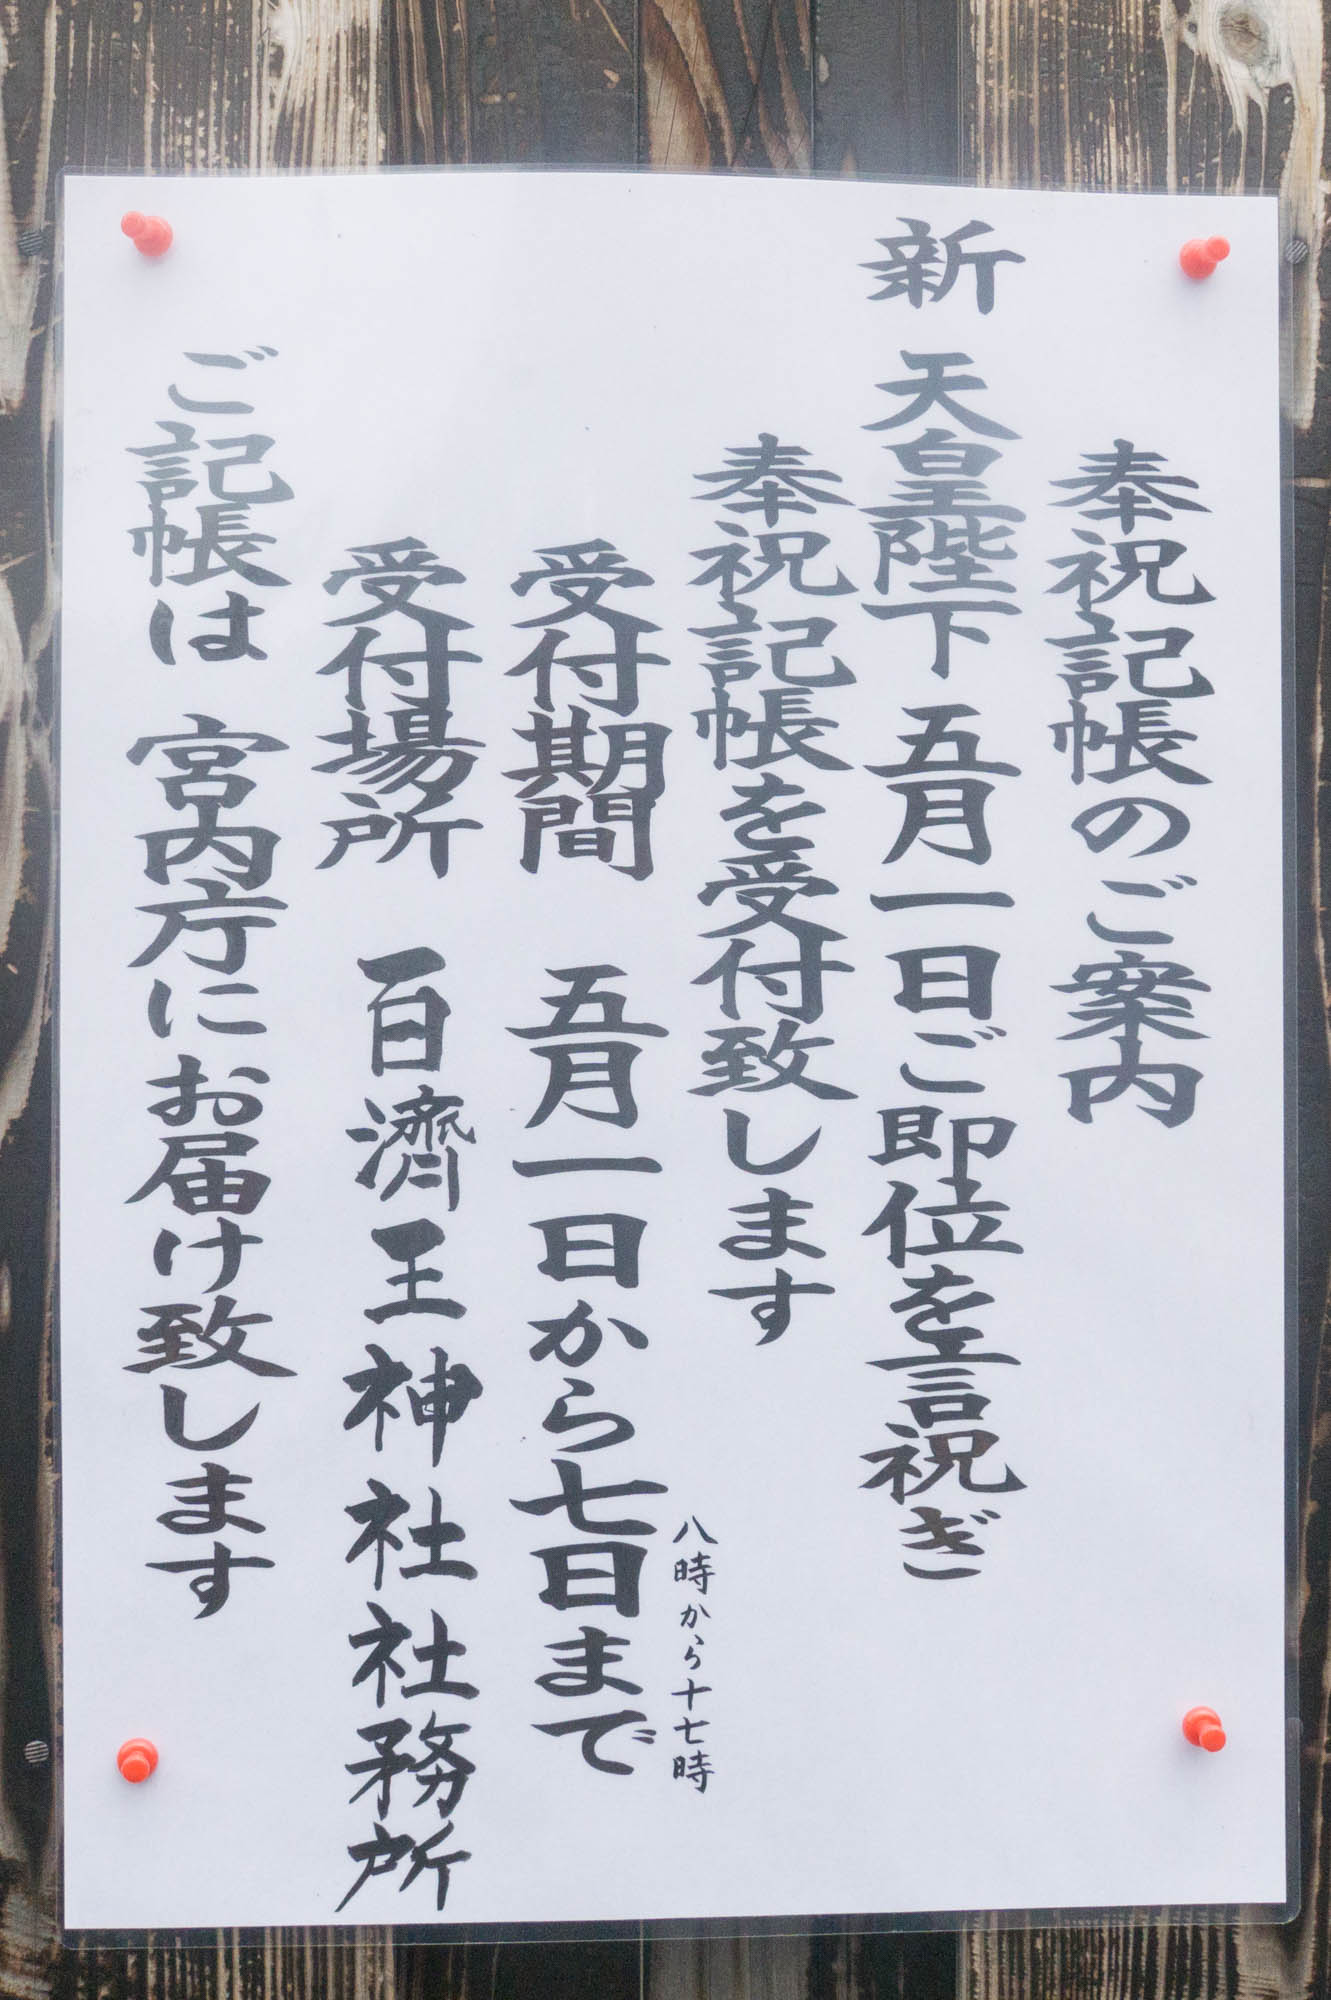 奉祝記帳のご案内
新 天皇陛下 五月一日ご即位を言祝ぎ
奉祝記帳を受付致します
八時から十七時
受付期間 五月一日から七日まで
受付場所 百濟王神社社務所
ご記帳は 宮内庁にお届け致します